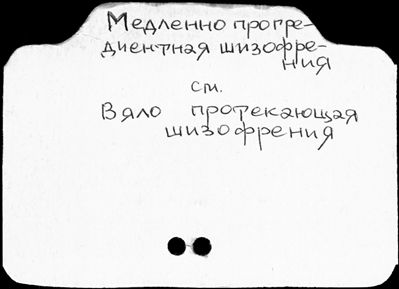 Медленно прогре-
диентная шизофре-
ния
см.
Вяло протекающая
шизофрения